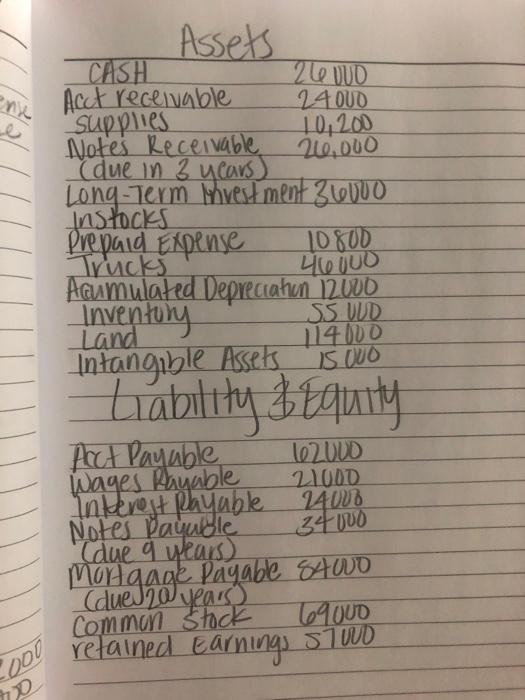 Assets
CASH 26000
Acct receivable 24000
supplies 10,200
Notes Receivable 26,000
(due in 3 years)
Long-Term Investment 36000
In stocks
Prepaid Expense 10800
Trucks 46000
Acumulated Depreciation 12000
Inventory 55000
Land 114000
Intangible Assets 15000
Liability & Equity
Acct Payable 62000
Wages Payable 21000
Interest Payable 24000
Notes Payable 34000
(due 9 years)
Mortgage Payable 84000
(due 20 years)
Common Stock 69000
retained Earnings 57000